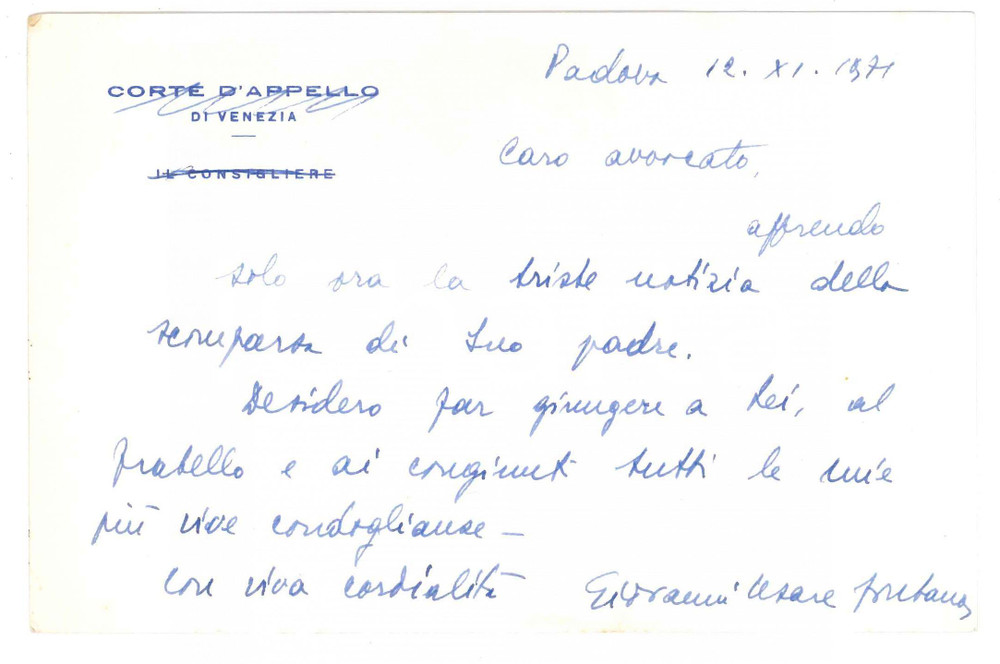 Padova 12. XI. 1971
CORTE D'APPELLO
DI VENEZIA
IL CONSIGLIERE
Caro avvocato,
apprendo
solo ora la triste notizia della
scomparsa di Suo padre.
Desidero far giungere a Lei, al
fratello e ai congiunti tutti le mie
più vive condoglianze –
Con viva cordialità
Giovanni Cesare Fontana